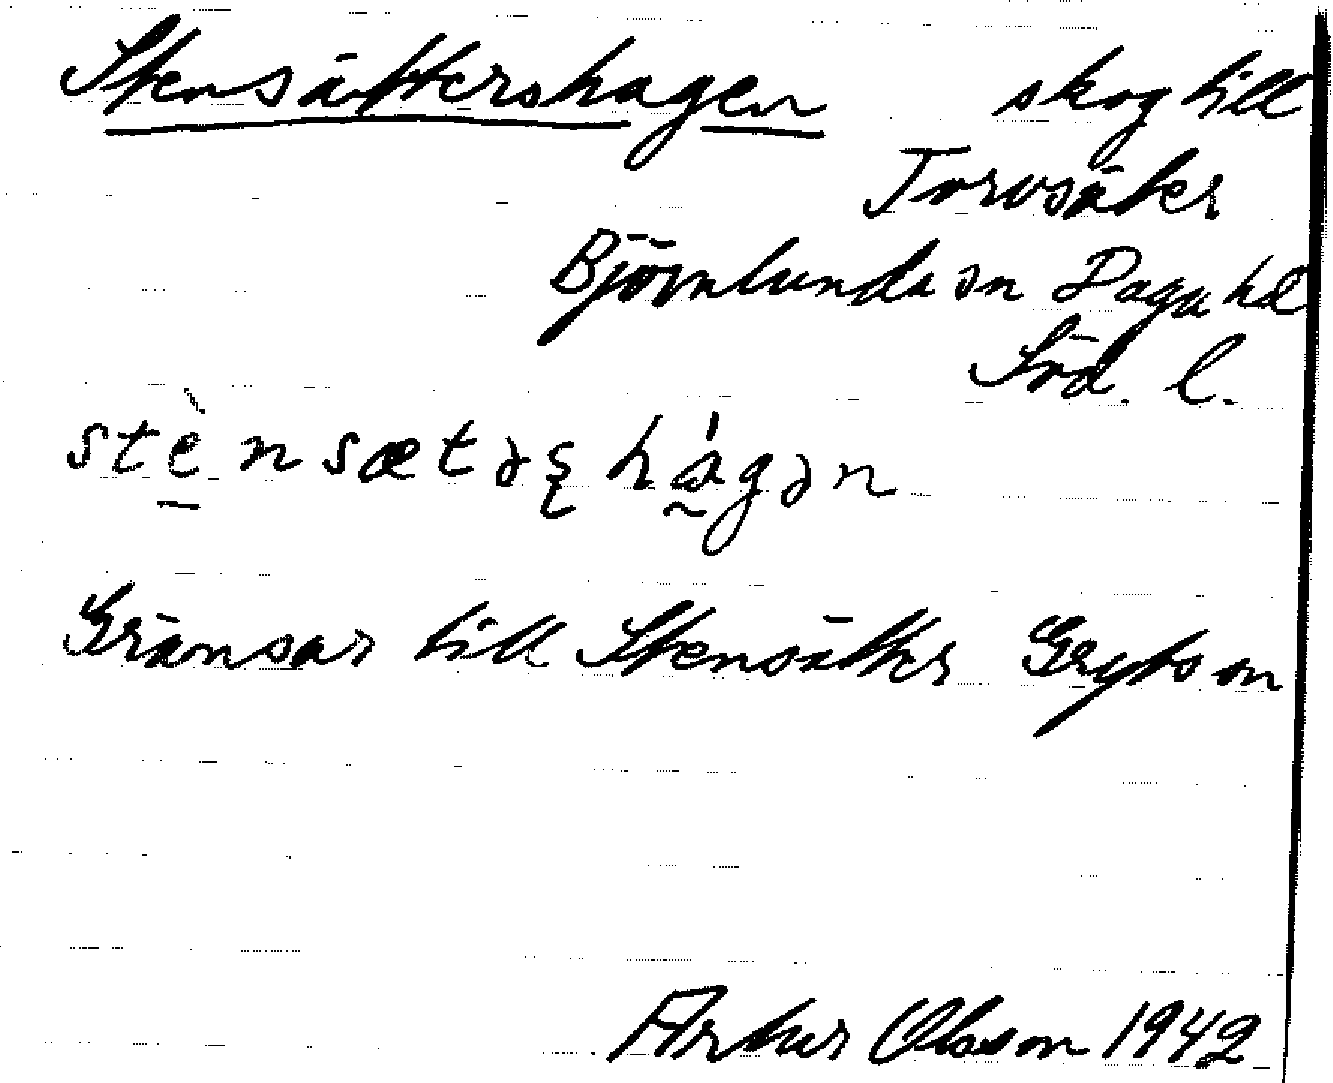 Stensättershagen skog till
Torvsäter
Björnlunda sn Daga hd
Söd. l.
stènsætəʂhágən
Gränsar till Stensätter Gryts sn
Arthur Olsson 1942